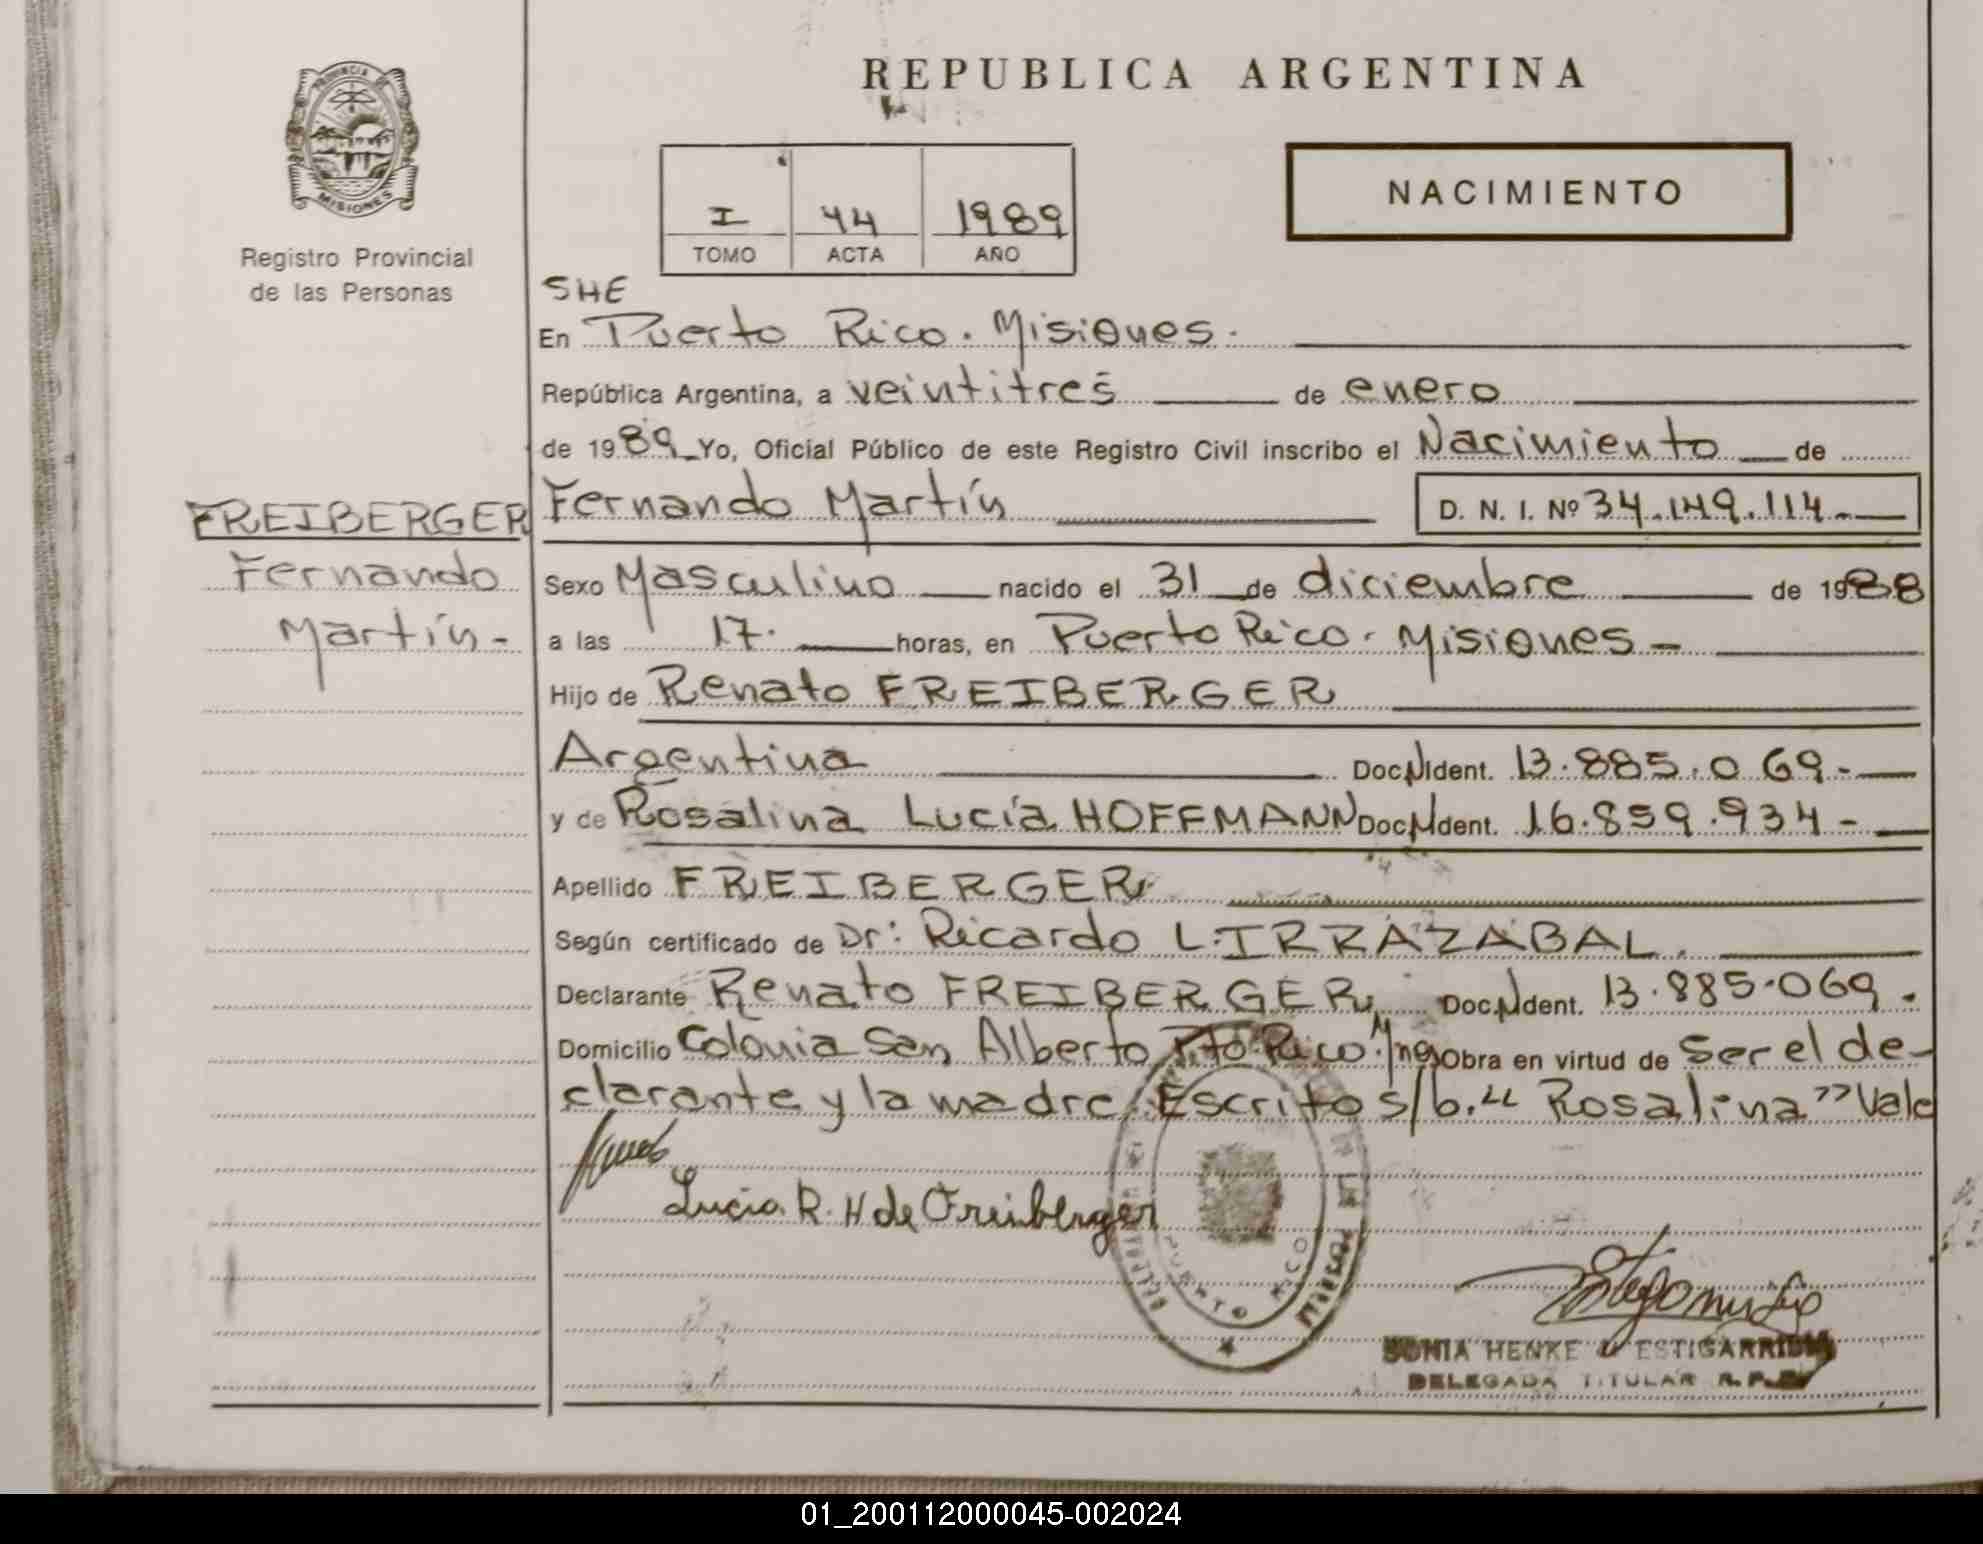 PROVINCIA DE
MISIONES
Registro Provincial
de las Personas
REPUBLICA ARGENTINA
NACIMIENTO
I 44 1989
TOMO ACTA AÑO
SHE
En Puerto Rico. Misiones.
República Argentina, a veintitrés de enero
de 1989 Yo, Oficial Público de este Registro Civil inscribo el Nacimiento de
FREIBERGER
Fernando
Martín-
Fernando Martín D. N. I. Nº 34.149.114.-
Sexo Masculino nacido el 31 de diciembre de 1988
a las 17. horas, en Puerto Rico. Misiones-
Hijo de Renato FREIBERGER
Argentina Doc.N.Ident. 13.885.069.-
y de Rosalina Lucía HOFFMANN Doc.N.Ident. 16.859.934-
Apellido FREIBERGER
Según certificado de Dr: Ricardo L. IRRAZABAL.
Declarante Renato FREIBERGER Doc.N.Ident. 13.885.069.
Domicilio Colonia San Alberto Pto Rico. Mnes Obra en virtud de Ser el de-
clarante y la madre. Escrito s/b. "Rosalina" Vale
Lucia R. H de Freiberger
PUERTO RICO
SONIA HENKE ESTIGARRIBIA
DELEGADA TITULAR R.P.P.
01_200112000045-002024